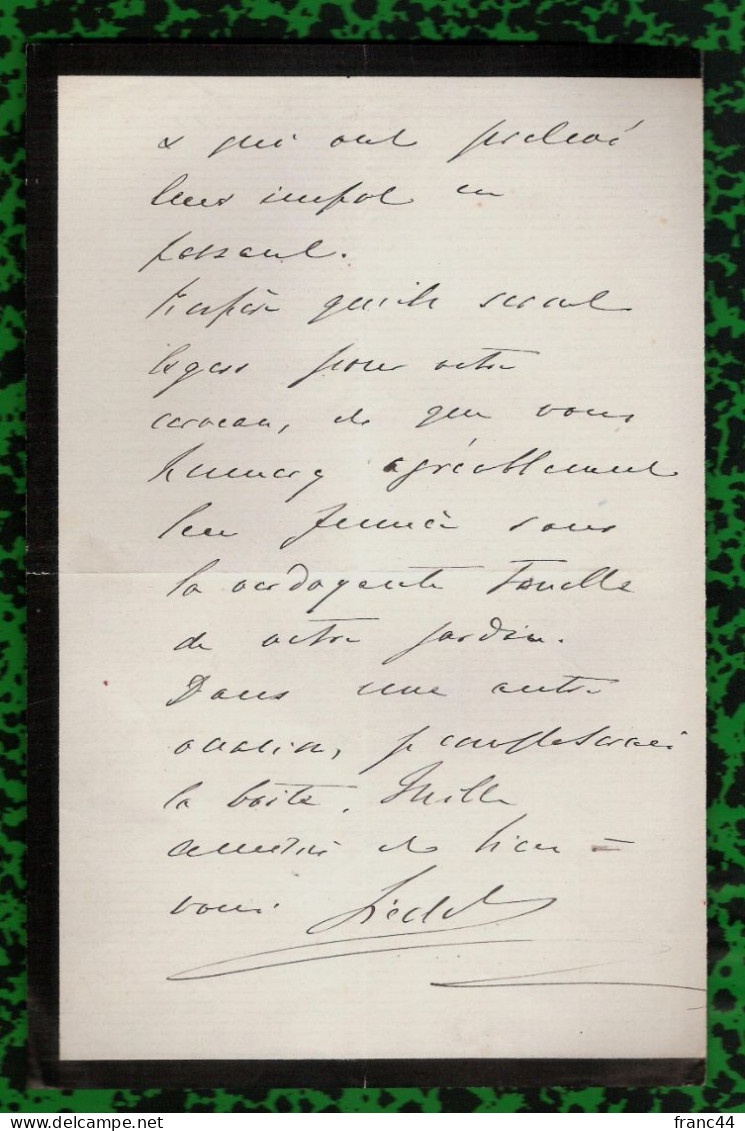 & qui ont prélevé
leur impot en
passant.
J'espère qu'ils seront
légers pour votre
cerveau, et que vous
humerez agréablement
leur fumée sous
la verdoyante Tonelle
de votre jardin.
Dans une autre
occasion, je complèterai
la boîte. Mille
amitiés et bien =
vous.
franc44